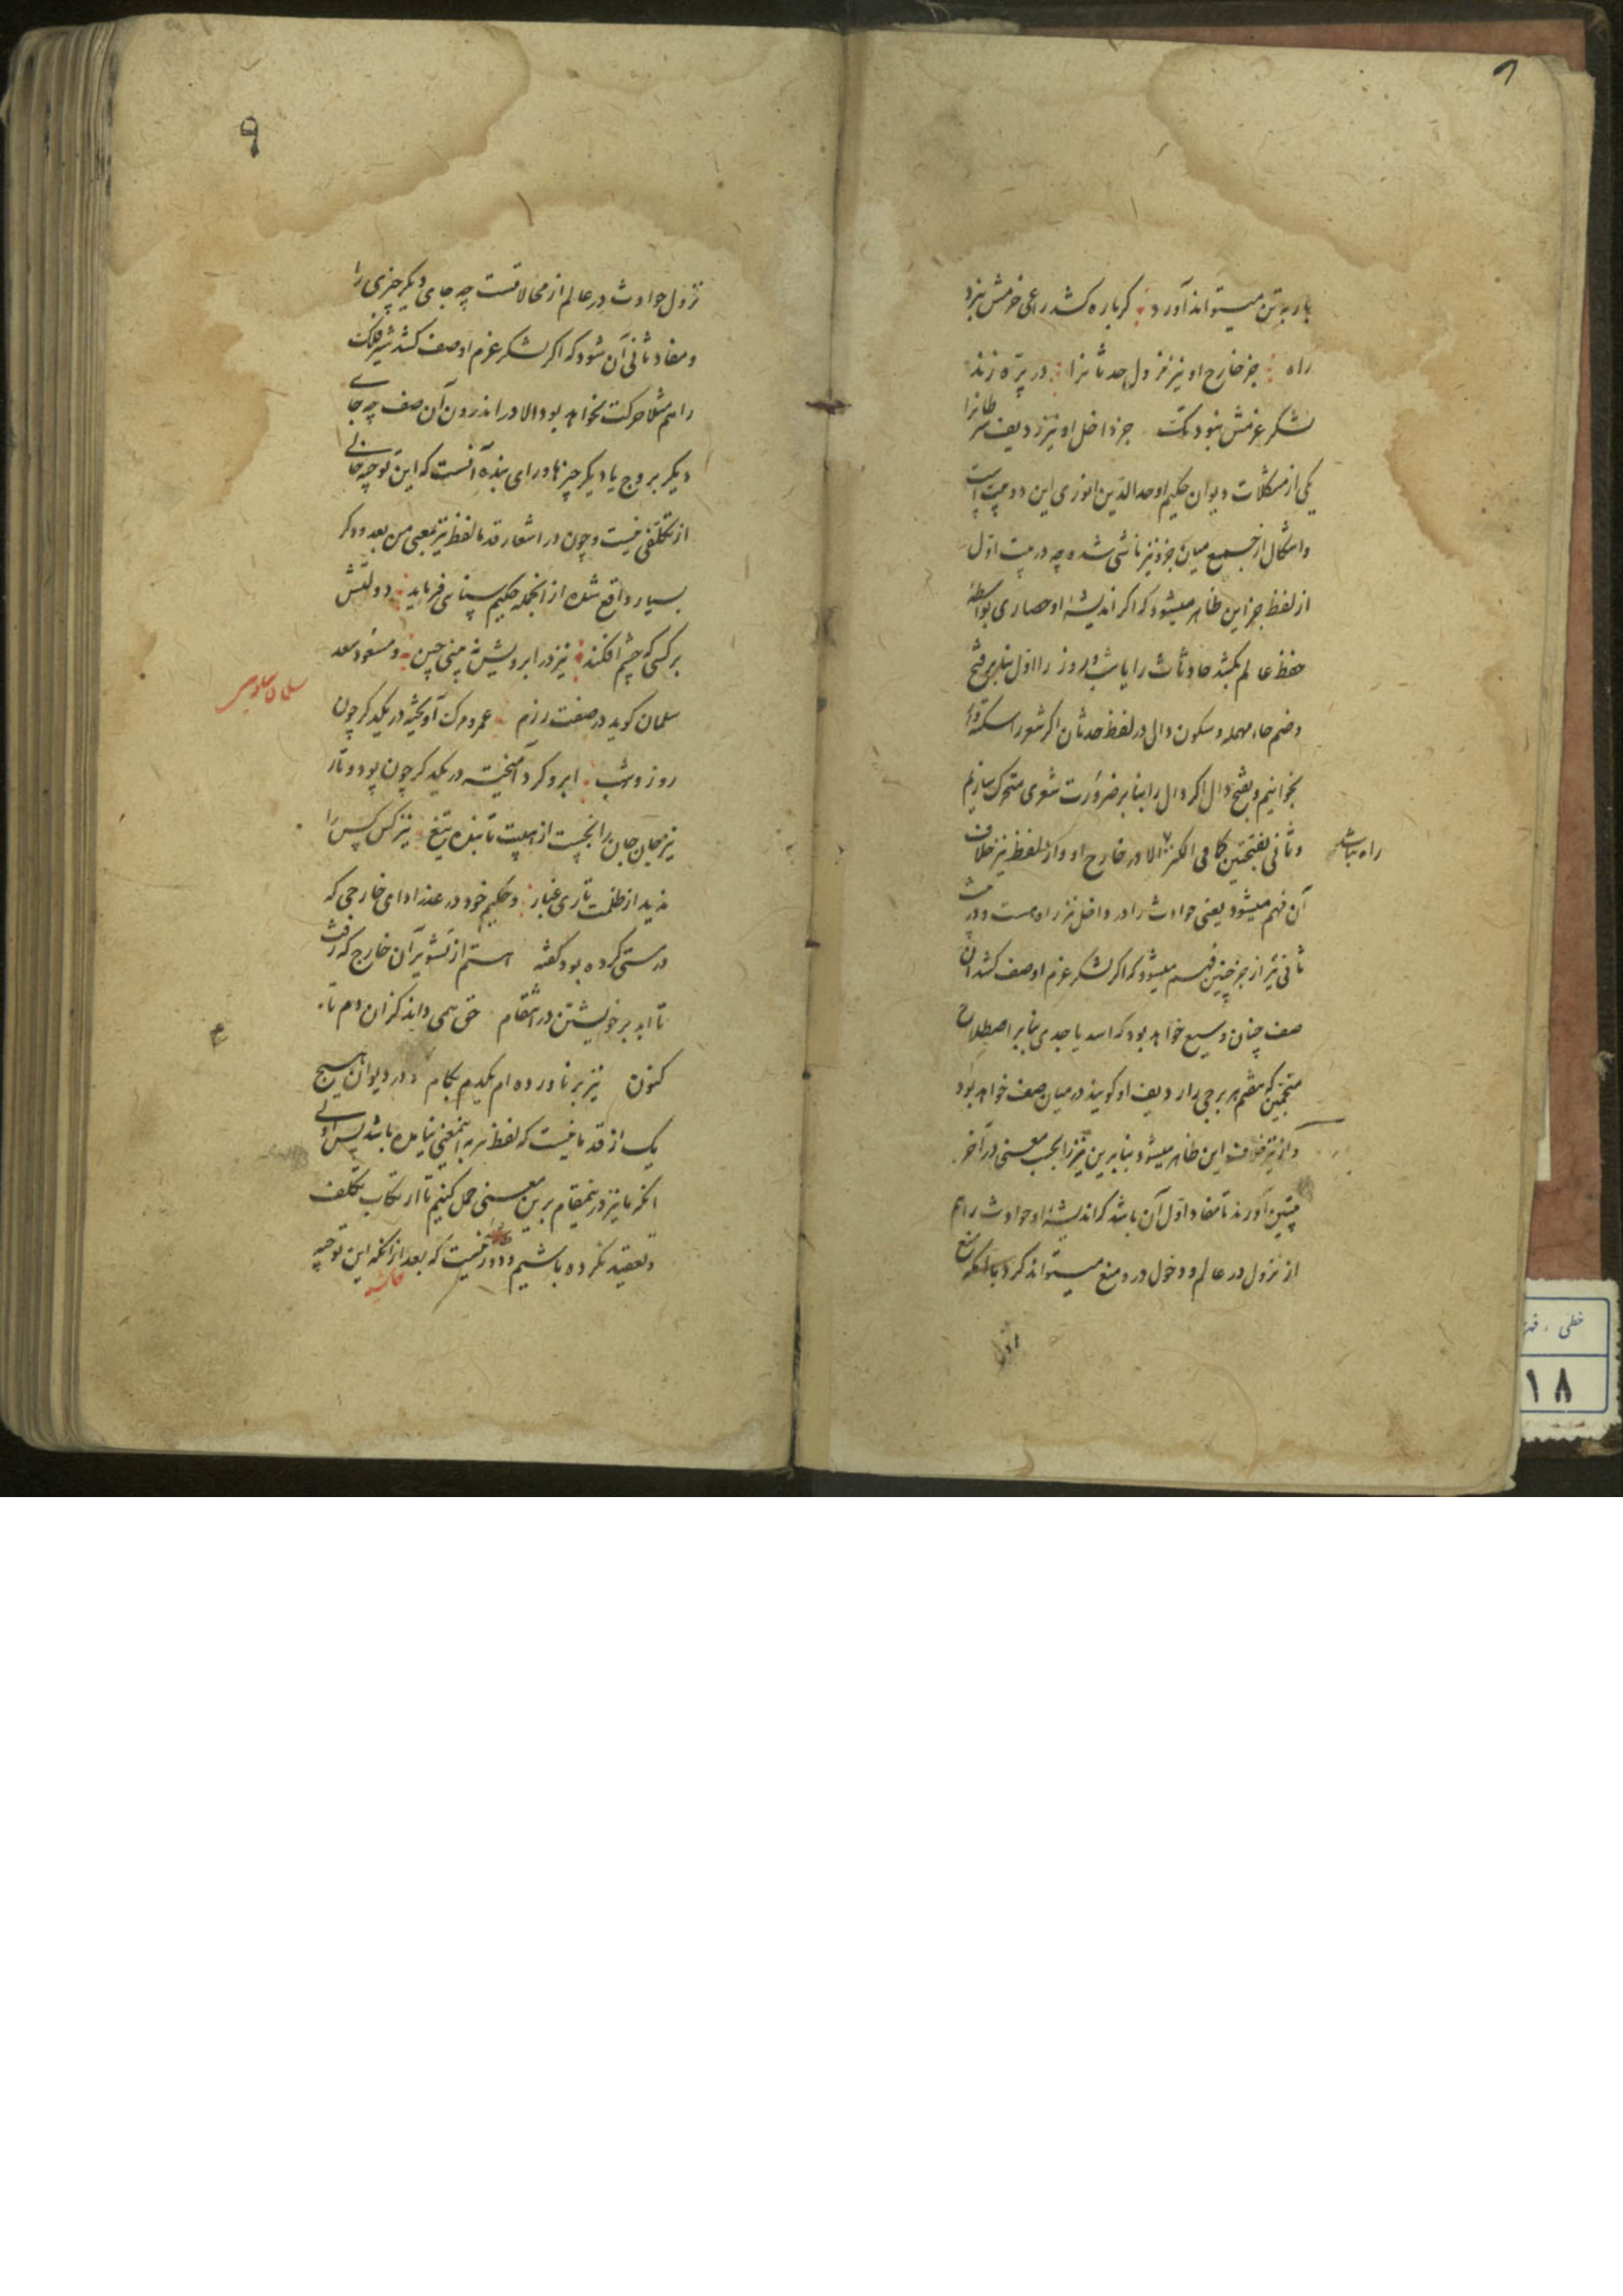 بار به تن میتواند آورد گر باره کشد راعی حزمش نبرد
راه جز خارج او نیز نزول حدثانرا در پرّه زند
لشکر عزمش نبود تک جز داخل او نیز ردیف سرطانرا
یکی از مشکلات دیوان حکیم اوحدالدین انوری این دو بیت است
و اشکال از جمع میان جز و نیز ناشی شده چه در بیت اول
از لفظ جز این ظاهر میشود که اگر اندیشه او حصاری بواسطهٔ
حفظ عالم بکشد حادثات را یا شب و روز را اول بنابر فتح
و ضم حاء مهمله و سکون دال در لفظ حدثان اگر شعر را سکته دار
بخوانیم و بفتح دال اگر دال را بنا بر ضرورت شعری متحرک سازیم
و ثانی بفتحتین کما فی الکنز الا در خارج او و از لفظ نیز خلاف
راه نباشد
آن فهم میشود یعنی حوادث را در داخل نیز راه هست و در بیت
ثانی نیز از جز چنین فهم میشود که اگر لشکر عزم او صف کشد آن
صف چنان وسیع خواهد بود که اسد یا جدی بنابر اصطلاح
منجمین که مقیم هر برجی را ردیف او گویند در میان صف خواهد بود
و از نیز خلاف این ظاهر میشود بنابرین نیز را بحسب معنی در آخر
بیتین آورند تا مفاد اول آن باشد که اندیشه او حوادث را هم
از نزول در عالم و دخول درو منع میتواند کرد با آنکه منع
از
۹
نزول حوادث در عالم از محالاتست چه جای دیگر چیزی را
و مفاد ثانی آن شود که اگر لشکر عزم او صف کشد شیر فلک
را هم مثلا حرکت نخواهد بود الا در اندرون آن صف چه جای
دیگر بروج یا دیگر چیزها و رای بنده آنست که این توجیه خالی
از تکلفی نیست و چون در اشعار قدما لفظ نیز بمعنی من بعد و دگر
بسیار واقع شده از آنجمله حکیم سنائی فرماید دولتش
بر کسی که چشم افکند نیز در ابرویش نه بینی چین و مسعود سعد
سلمان گوید در صفت رزم عمر و مرگ آویخته در یکدگر چون
سلمان ساوجی
روز و شب ابر و گرد آمیخته در یکدگر چون پود و تار
نیز مجان جان را نجست از هیبت تابنده تیغ نیز کس کس را
ندید از ظلمت تاری غبار و حکیم خود در عذر ادای خارجی که
در مستی کرده بود گفته هستم از تشویر آن خارج که رفت
تا ابد بر خویشتن در انتقام حق همی داند کز آن دم تا
کنون نیز بر ناورده ام یکدم بکام و در دیوان هیچ
یک از قدما نیست که لفظ نیز به اینمعنی نیامده باشد پس اولی
آنکه ما نیز در ینمقام برین معنی حمل کنیم تا ارتکاب تکلف
و تعقید نکرده باشیم و دور نیست که بعد از آنکه این توجیه